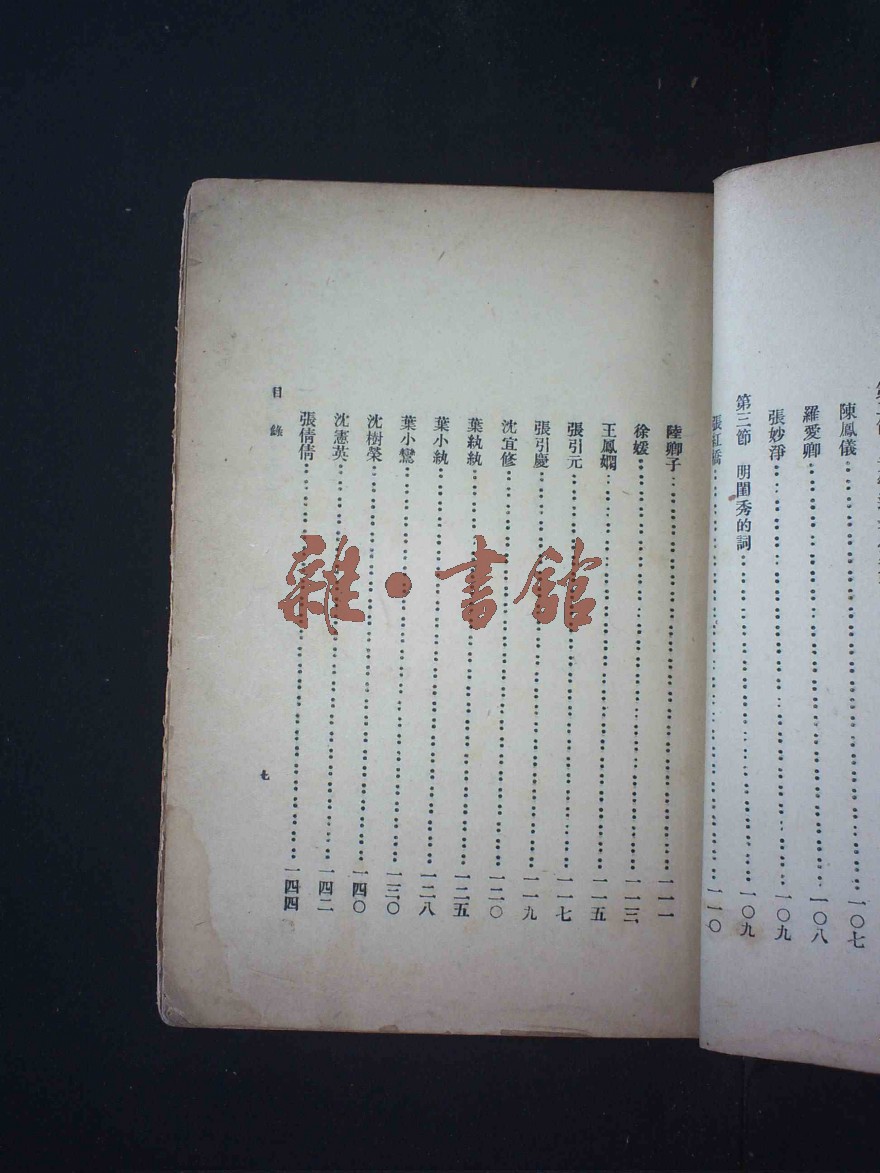 陳鳳儀……一〇七
羅愛卿……一〇八
張妙淨……一〇九
第三節 明閨秀的詞……一〇九
張紅橋……一一〇
陸卿子……一一一
徐媛……一一三
王鳳嫻……一一五
張引元……一一七
張引慶……一一九
沈宜修……一二〇
葉紈紈……一二五
葉小紈……一二八
葉小鸞……一三〇
沈樹榮……一四〇
沈憲英……一四二
張倩倩……一四四
目錄
七
雜·書館